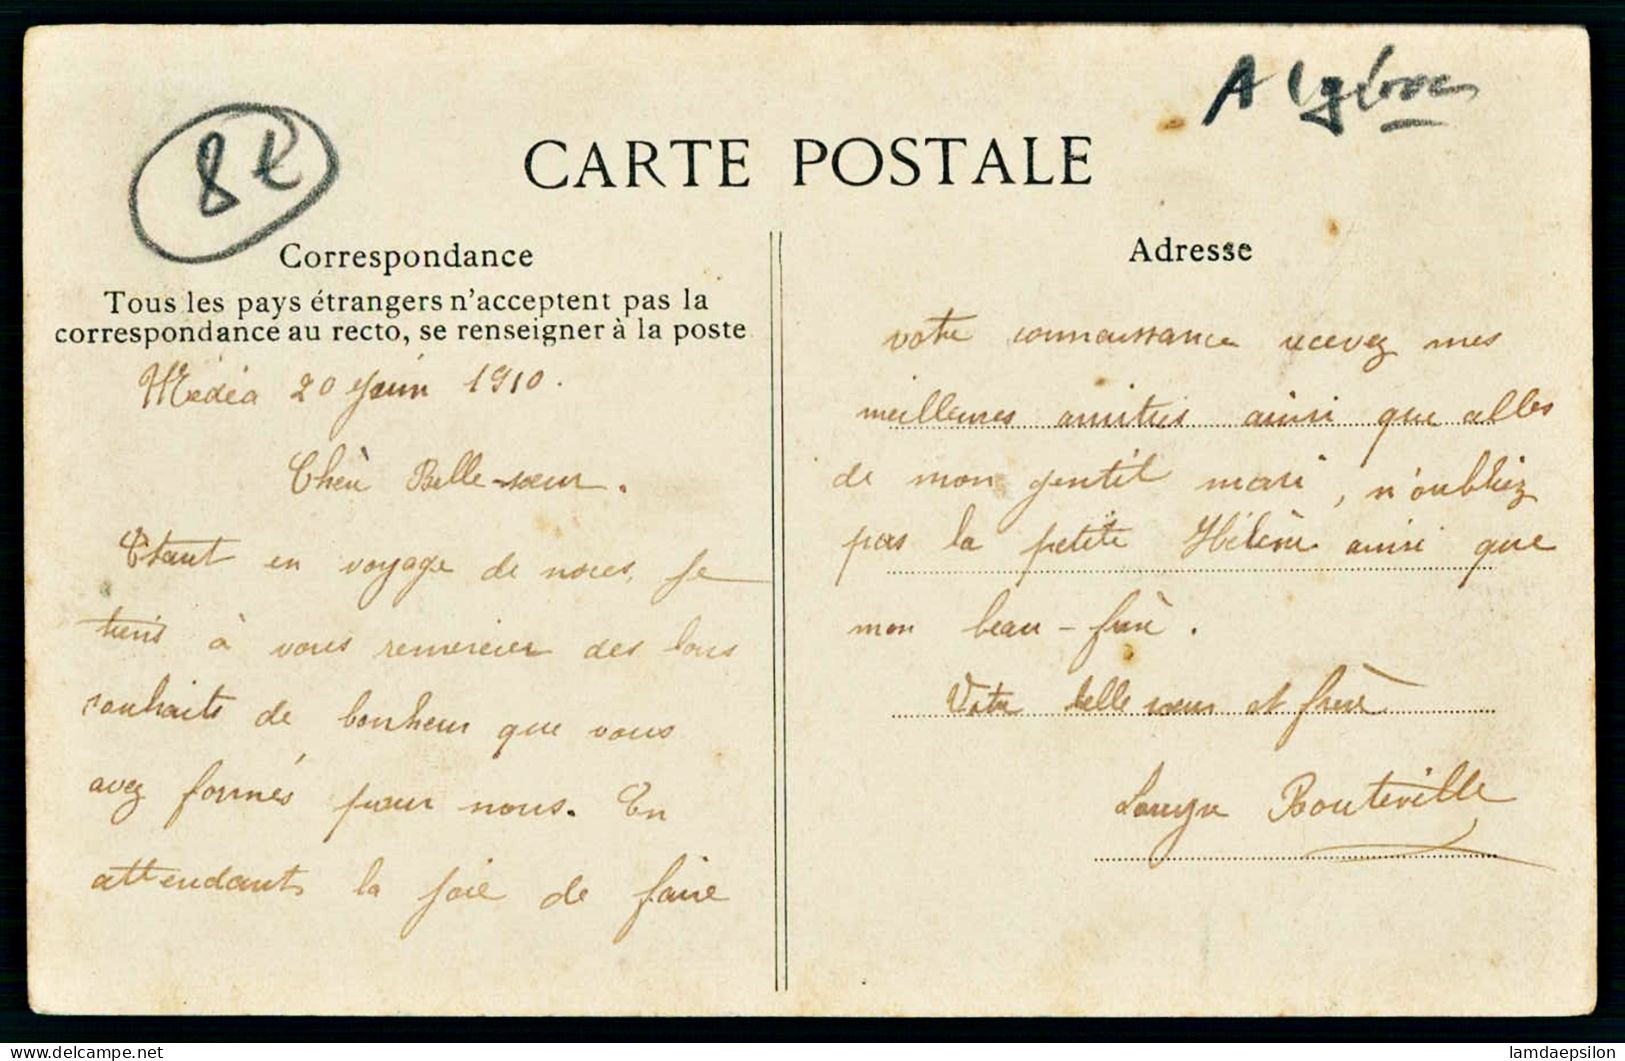 Algérie
8€
CARTE POSTALE
Correspondance
Tous les pays étrangers n'acceptent pas la
correspondance au recto, se renseigner à la poste
Médéa 20 Juin 1910.
Chère Belle-sœur.
Etant en voyage de noces, je
tiens à vous remercier des bons
souhaits de bonheur que vous
avez formés pour nous. En
attendant la joie de faire
Adresse
votre connaissance recevez mes
meilleures amitiés ainsi que celles
de mon gentil mari, n'oubliez
pas la petite Hélène ainsi que
mon beau-frère.
Votre belle sœur et frère
Bouteville
lamdaepsilon